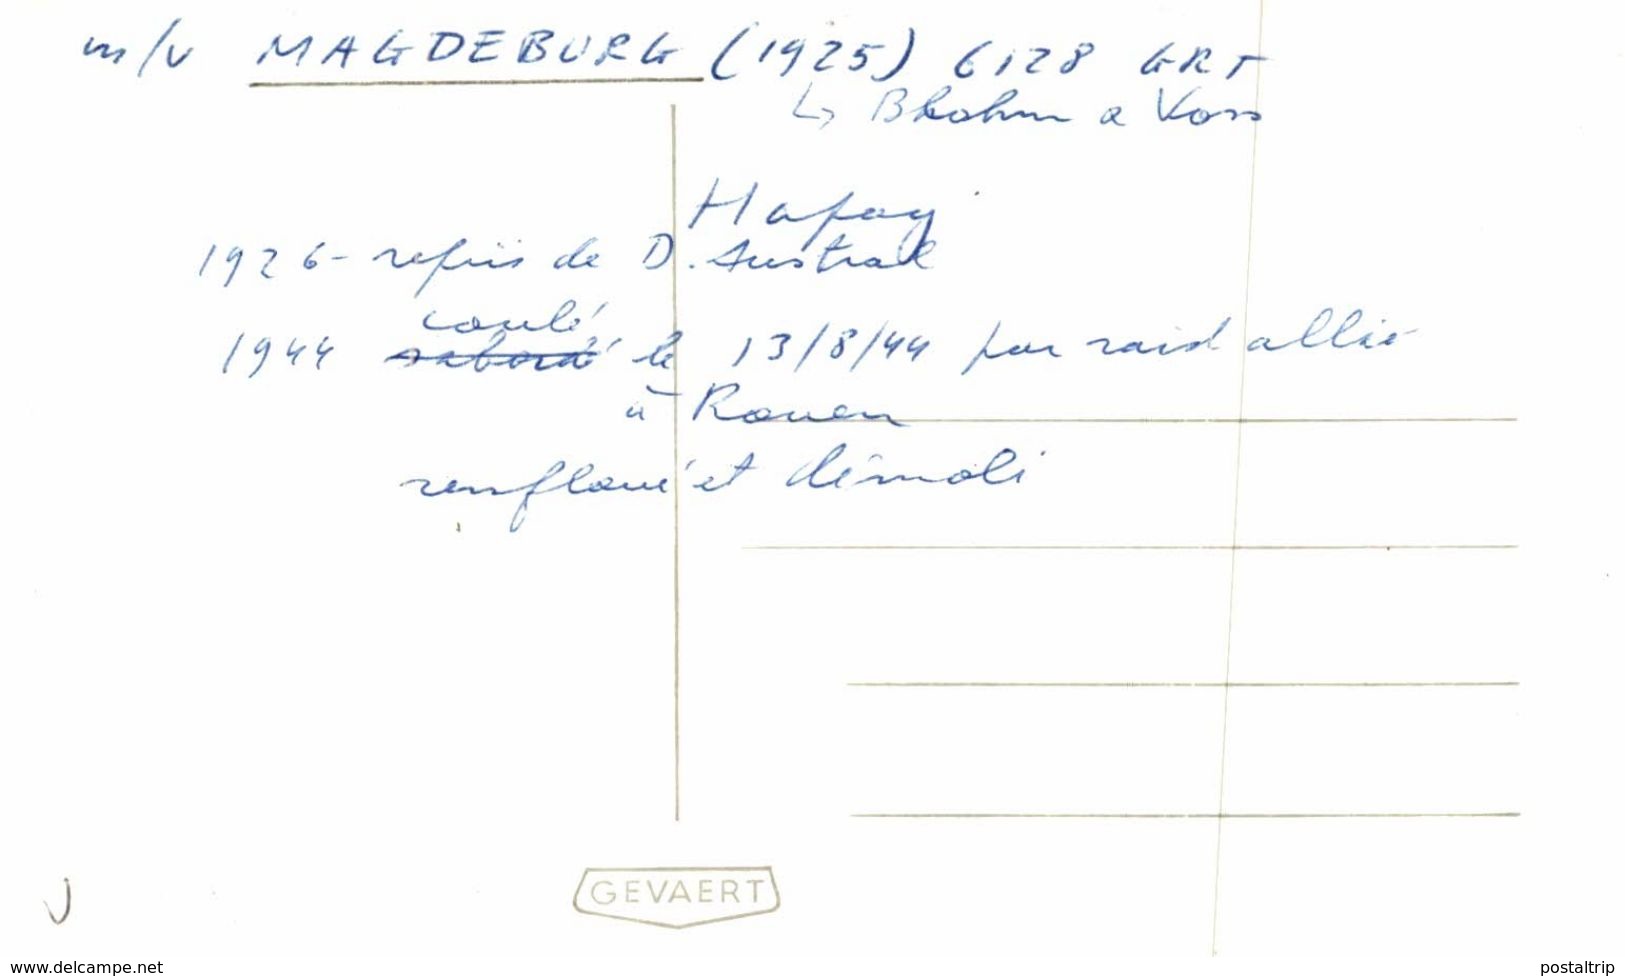 m/v MAGDEBURG (1925) 6128 GRT
↳ Blohm & Voss
Hapag
1926 - repris de D. Austral
coulé
1944 sabordé le 13/8/44 par raid allié
à Rouen
renfloué et démoli
GEVAERT
www.delcampe.net
postaltrip